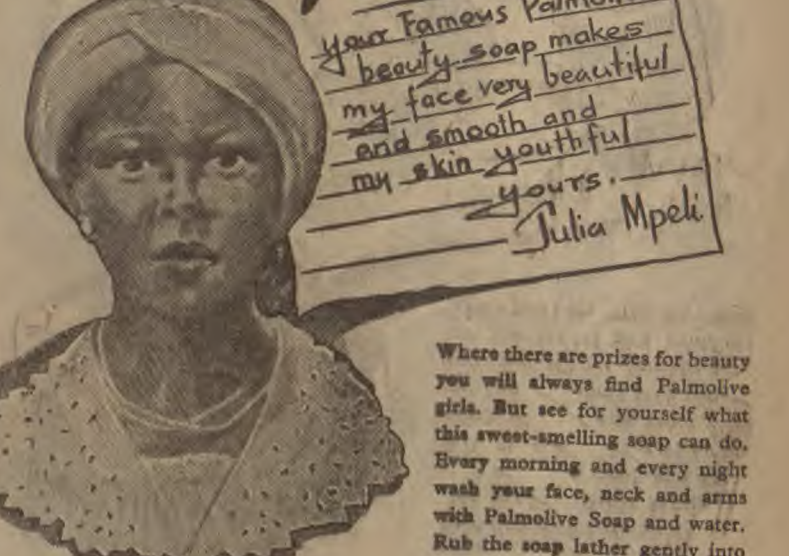 your Famous Palmolive
beauty soap makes
my face very beautiful
and smooth and
my skin youthful
yours.
Julia Mpeli
Where there are prizes for beauty
you will always find Palmolive
girls. But see for yourself what
this sweet-smelling soap can do.
Every morning and every night
wash your face, neck and arms
with Palmolive Soap and water.
Rub the soap lather gently into